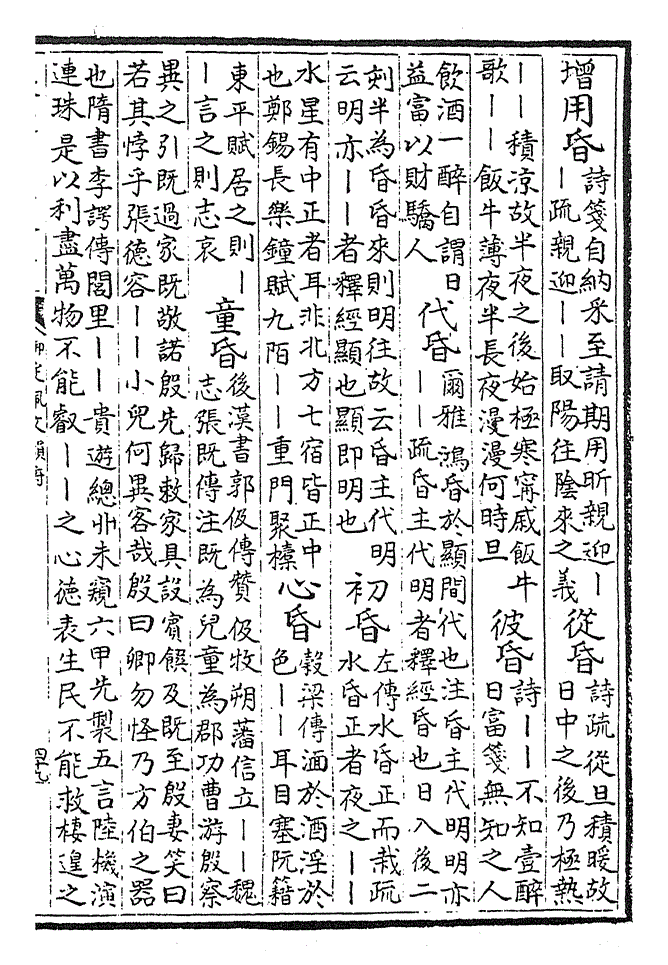 增用昏 詩箋自納采至請期用昕親迎—
—疏親迎——取陽往陰來之義
從昏 詩疏從旦積暖故
日中之後乃極熱
——積涼故半夜之後始極寒甯戚飯牛
歌——飯牛薄夜半長夜漫漫何時旦
彼昏 詩——不知壹醉
日富箋無知之人
飲酒一醉自謂日
益富以財驕人
代昏 爾雅鴻昏於顯間代也注昏主代明明亦
——疏昏主代明者釋經昏也日入後二
刻半為昏昏來則明往故云昏主代明
云明亦——者釋經顯也顯即明也
初昏 左傳水昏正而栽疏
水昏正者夜之——
水星有中正者耳非北方七宿皆正中
也鄭錫長樂鐘賦九陌——重門聚檯
心昏 穀梁傳湎於酒淫於
色——耳目塞阮籍
東平賦居之則—
—言之則志哀
童昏 後漢書郭伋傳贊伋牧朔藩信立——魏
志張既傳注既為兒童為郡功曹游殷察
異之引既過家既敬諾殷先歸敕家具設賓饌及既至殷妻笑曰
若其悖乎張德容——小兒何異客哉殷曰卿勿怪乃方伯之器
也隋書李諤傳閭里——貴遊總丱未窺六甲先製五言陸機演
連珠是以利盡萬物不能叡——之心德表生民不能救棲遑之